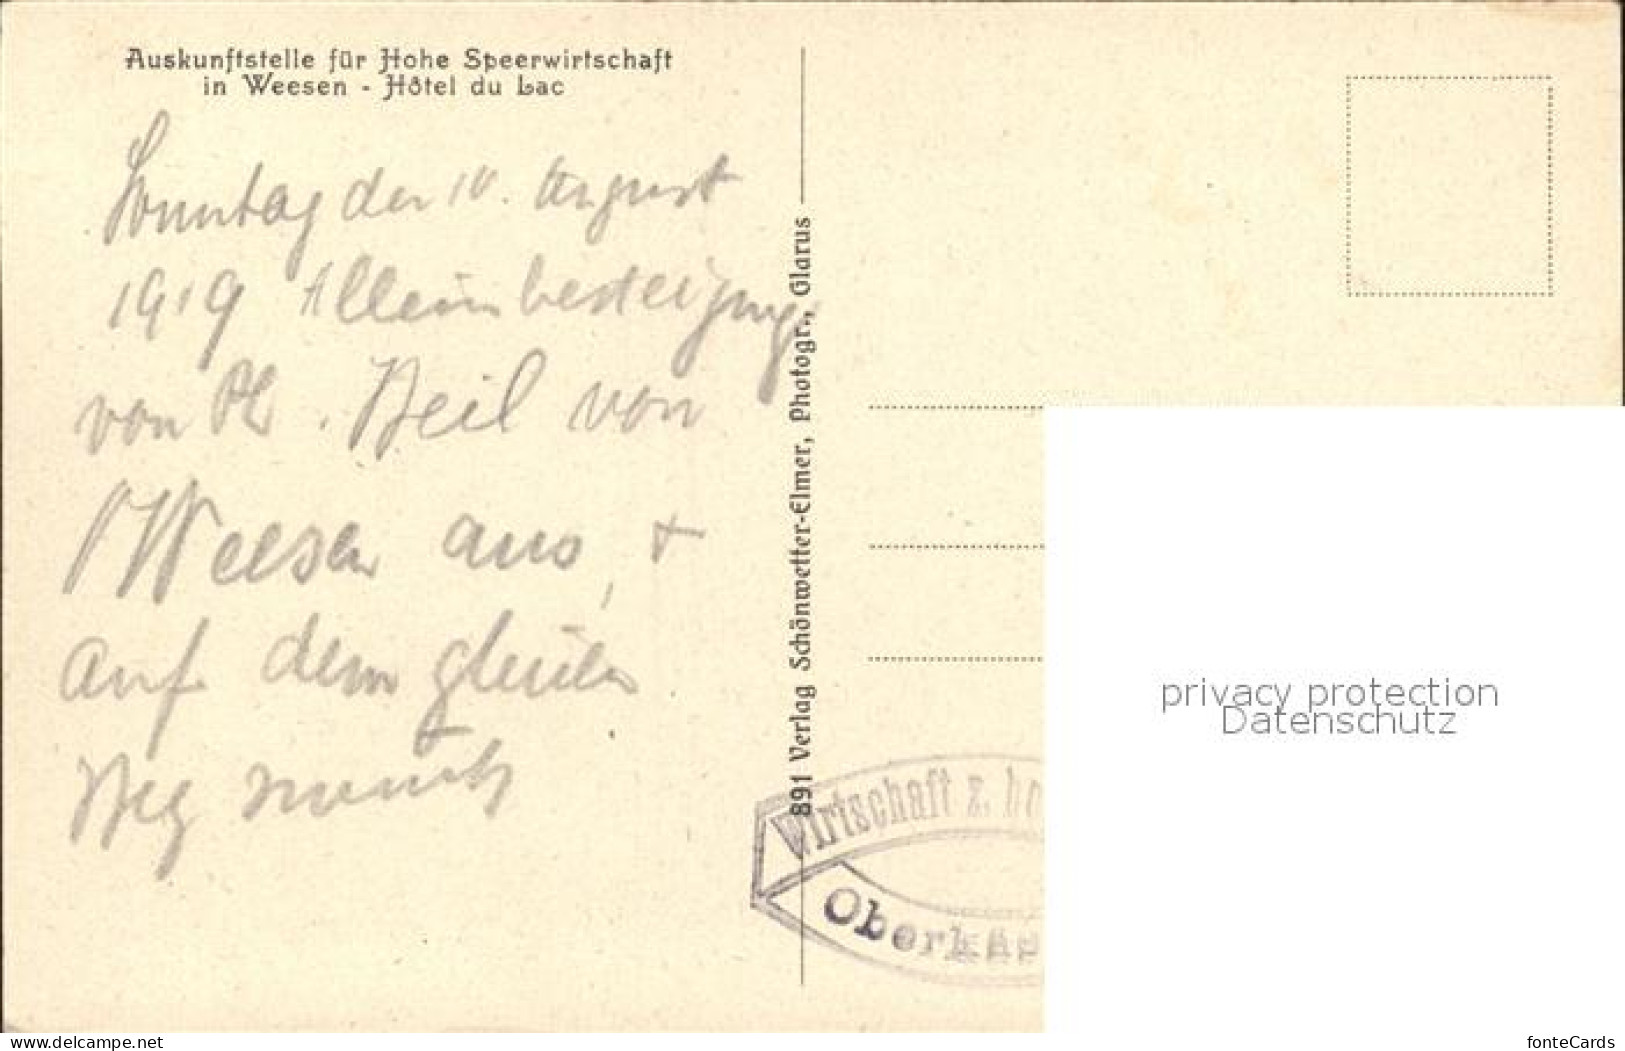 Auskunftstelle für Hohe Speerwirtschaft
in Weesen - Hôtel du Lac
Sonntag den 10. August
1919 Alleinbesteigung
von Ph. Weil von
Weesen aus, +
auf dem gleichen
Weg zurück
891 Verlag Schönwetter-Elmer, Photogr., Glarus
Wirtschaft z. ho
Oberkäs
privacy protection
Datenschutz
www.delcampe.net
fonteCards